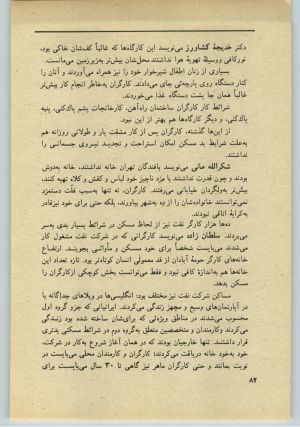 دکتر خدیجهٔ کشاورز می‌نویسد این کارگاه‌ها که غالباً کف‌شان خاکی بود،
نور کافی و وسیلهٔ تهویهٔ هوا نداشتند محل‌شان بیش‌تر به زیرزمین می‌مانست.
بسیاری از زنان اطفال شیرخوار خود را نیز همراه می‌آوردند و آنان را
کنار دستگاه روی پارچه‌ئی جای می‌دادند. کارگران به‌خاطر انجام کار بیش‌تر
غالباً همان جا پشت دستگاه غذا می‌خوردند.
شرائط کار کارگران ساختمان راه‌آهن، کارخانجات پشم پاک‌کنی، پنبه
پاک‌کنی، و دیگر کارگاه‌ها هم بهتر از این نبود.
از این‌ها گذشته، کارگران پس از کار مشقت بار و طولانی روزانه هم
به‌علت شرایط بد مسکن امکان استراحت و تجدید نیروی جسمانی را
نداشتند.
شکرالله مانی می‌نویسد بافندگان تهران خانه نداشتند، خانه به‌دوش
بودند و چون قدرت نداشتند با مزد ناچیز خود لباس و کفش و کلاه تهیه کنند،
بیش‌تر به‌ولگردان خیابانی می‌رفتند. کارگران، نه تنها به‌سبب قلّت دستمزد
نمی‌توانستند خانواده‌شان را از ده به‌شهر بیاورند، بلکه حتی برای خود نیز قادر
به‌کرایهٔ اتاقی نبودند.
ده‌ها هزار کارگر نفت نیز از لحاظ مسکن در شرائط بسیار بدی به‌سر
می‌بردند. سلطان زاده می‌نویسد کارگرانی که در شرکت نفت مشغول کار
می‌شدند می‌بایست شخصاً برای خود مسکن و مأوائی بجویند. ارتفاع
خانه‌های کارگر حومهٔ آبادان از قد معمولی انسان کوتاه‌تر بود. تازه تعداد این
خانه‌ها هم به‌اندازهٔ کافی نبود و فقط می‌توانست بخش کوچکی از کارگران را
مسکن بدهد.
مساکن شرکت نفت نیز مختلف بود: انگلیسی‌ها در ویلاهای جداگانه یا
در آپارتمان‌های وسیع و مجهز زندگی می‌کردند. ایرانیانی که جزو گروه اول
محسوب می‌شدند در مناطق ویژه‌ئی که برای‌شان ساخته شده بود زندگی
می‌کردند و کارمندان و متخصصین متعلق به‌گروه دوم در شرائط مسکنی بدتری
قرار داشتند. تنها خارجیان بودند که در همان آغاز شروع به‌کار در شرکت،
خود به‌خود خانه دریافت می‌کردند؛ کارگران و کارمندان محلی می‌بایست در
نوبت بمانند و حتی کارگران ماهر نیز گاهی تا ۳۰ سال می‌بایست برای
۸۲